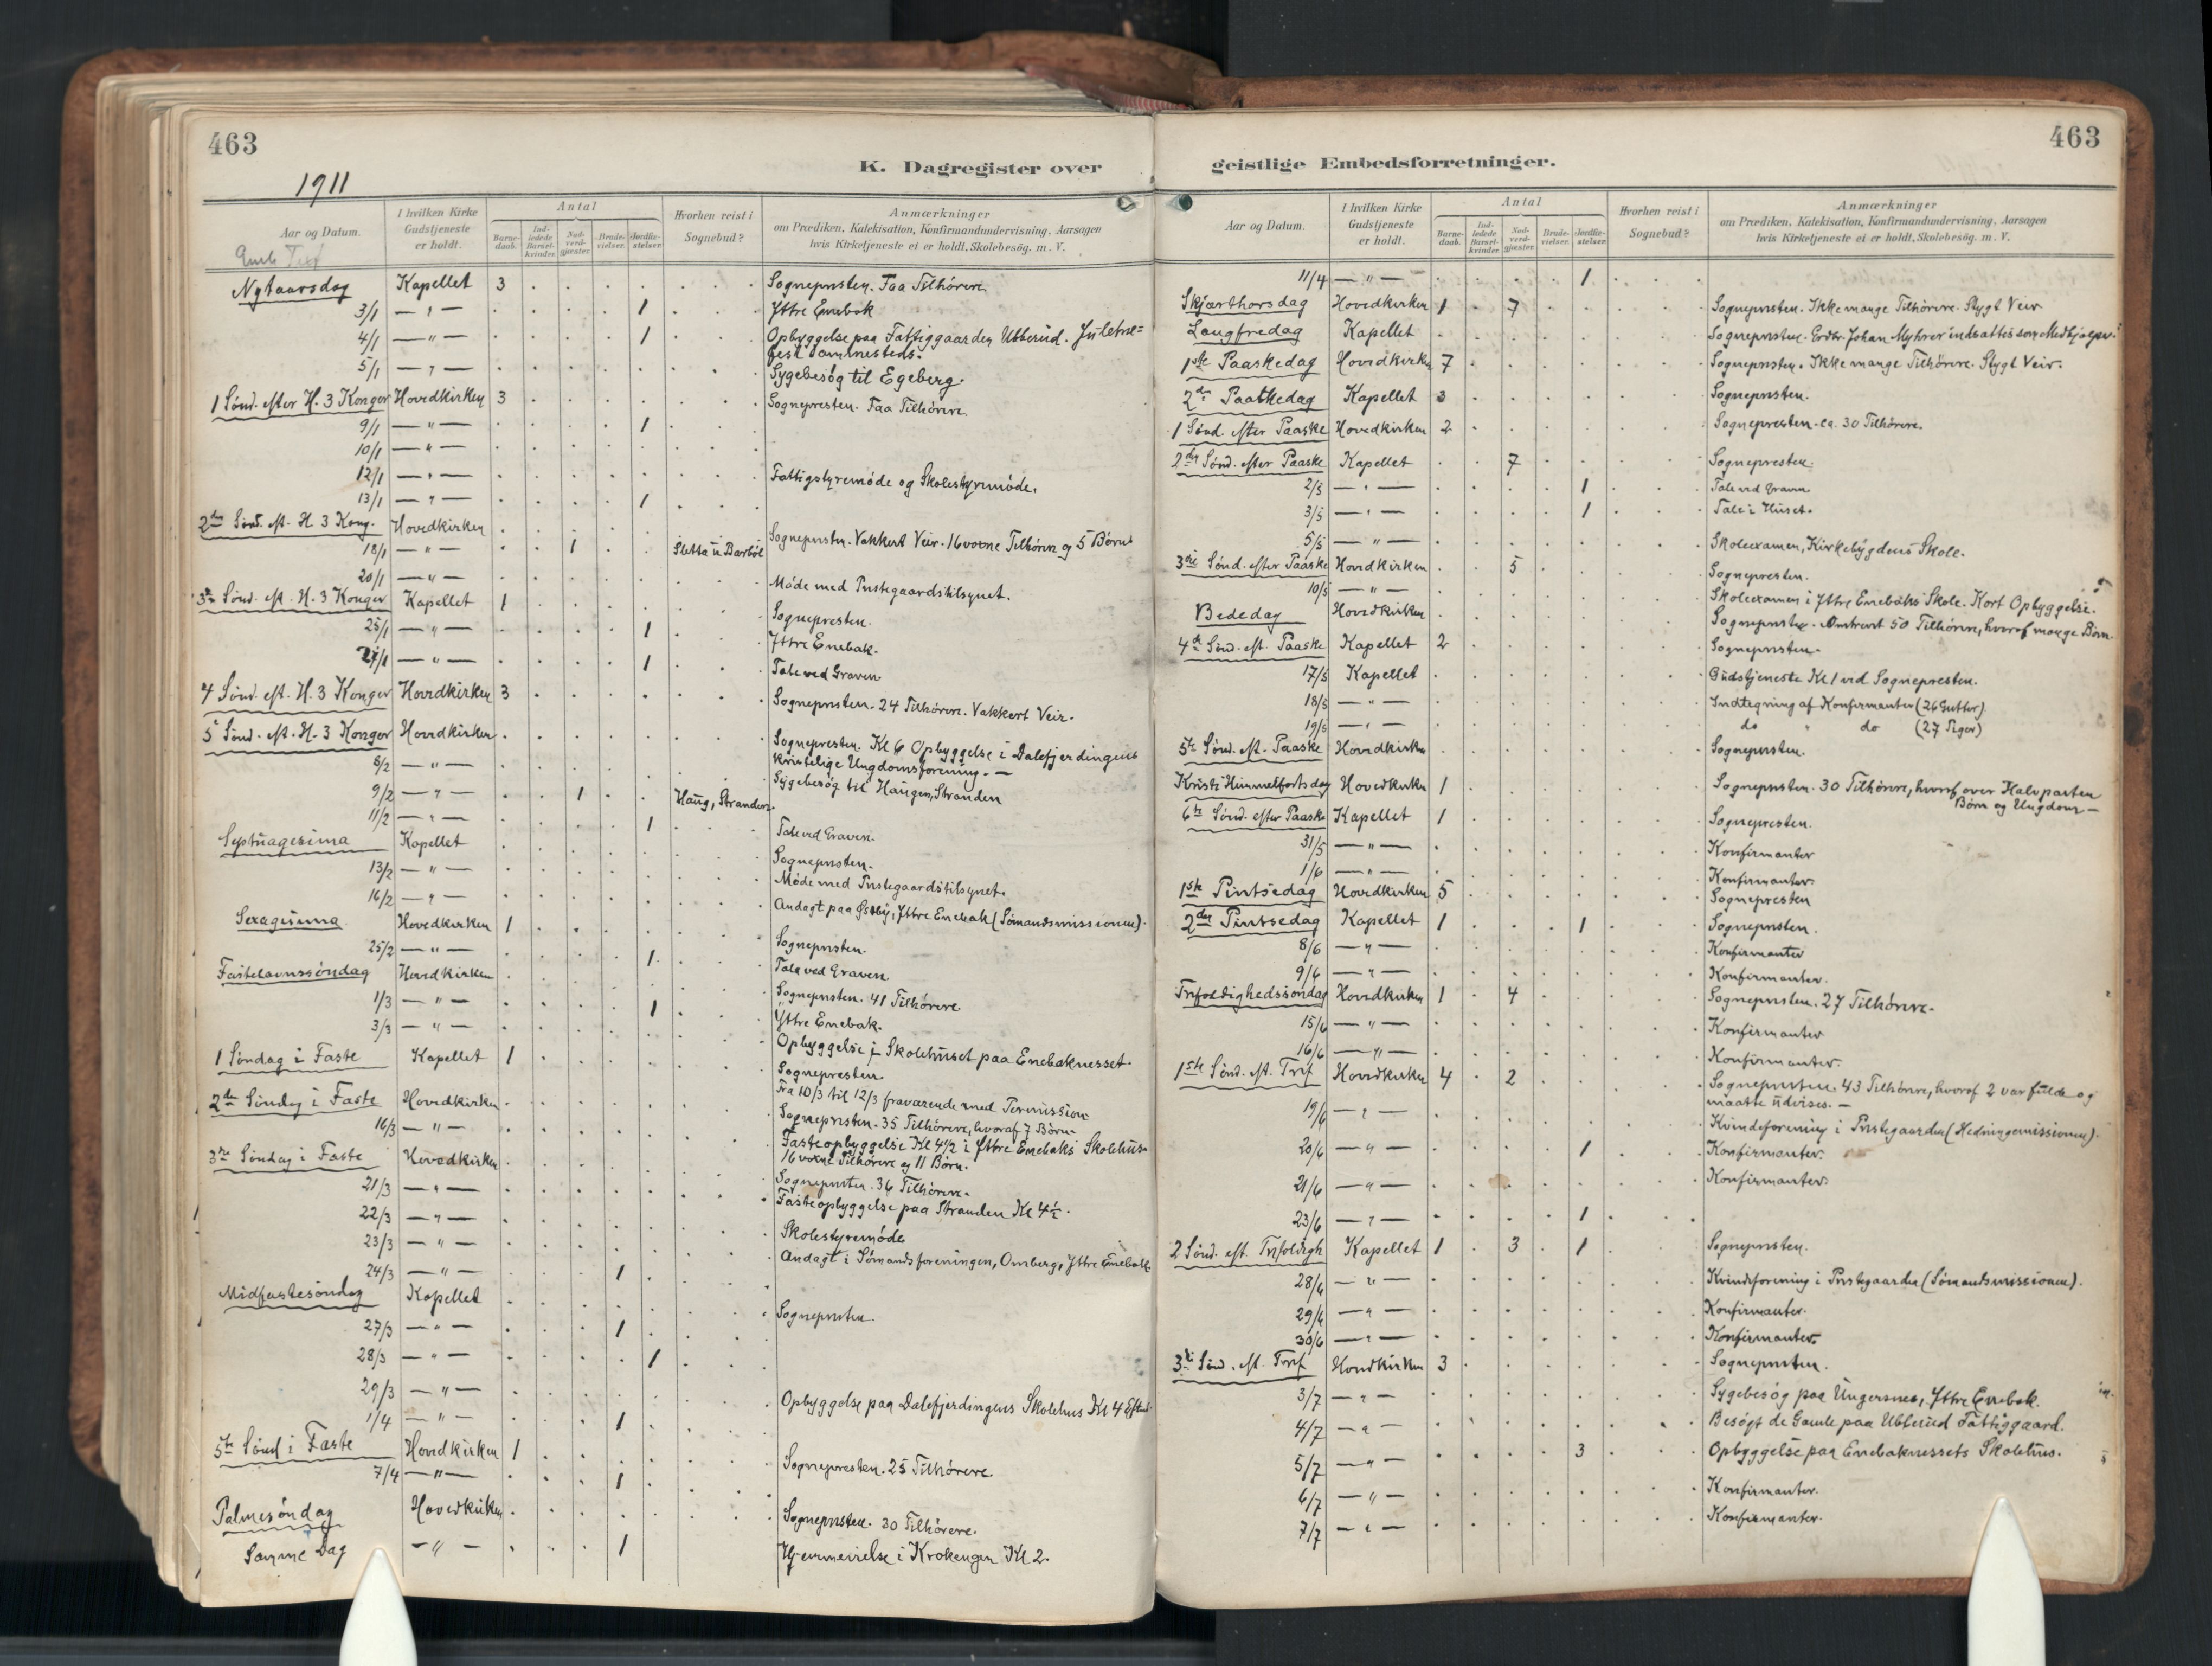 463
1911
K. Dagregister over
Aar og Datum.
I hvilken Kirke Gudstjeneste er holdt.
Antal
Barnedaab.
Indledede Barselkvinder
Nadverdgjæster
Brudevielser.
Jordfæstelser
Hvorhen reist i Sognebud?
Anmærkninger
om Prædiken, Katekisation, Konfirmandundervisning, Aarsagen
hvis Kirketjeneste ei er holdt, Skolebesøg, m. V.
Nytaarsdag Kapellet 3 Sognepresten. Faa Tilhørere
3/1 — " — 1 Yttre Enebak
4/1 — " — 1 Opbyggelse paa Fattiggaarden Ubberud. Juletræ=
fest sammesteds.
5/1 — " — Sygebesøg til Egeberg.
1 Sønd. efter H. 3 Konger Hovedkirken 3 Sognepresten. Faa Tilhørere
9/1 — " — 1
10/1 — " —
12/1 — " — Fattigstyremøde og Skolestyremøde.
13/1 — " — 1
2den Sønd. eft. H. 3 Kong. Hovedkirken Sognepresten. Vakkert Veir. 16 voxne Tilhørere og 5 Børn
18/1 — " — 1 Sletta u. Barbøl
20/1 — " — Møde med Prestegaardstilsynet.
3die Sønd. eft. H. 3 Konger Kapellet 1 Sognepresten.
25/1 — " — 1 Yttre Enebak.
27/1 — " — 1 Tale ved Graven
4 Sønd. eft. H. 3 Konger Hovedkirken 3 Sognepresten. 24 Tilhørere. Vakkert Veir.
5 Sønd. eft. H. 3 Konger Hovedkirken Sognepresten. Kl 6 Opbyggelse i Dalefjerdingens
kristelige Ungdomsforening. —
8/2 — " — Sygebesøg til Haugen, Stranden
9/2 — " — 1 Haug, Stranden.
11/2 — " — 1 Tale ved Graven.
Septuagesima Kapellet Sognepresten.
13/2 — " — Møde med Prestegaardstilsynet.
16/2 — " — Andagt paa Østby, Yttre Enebak (Sømandsmissionen).
Sexagesima Hovedkirken 1 Sognepresten.
25/2 — " — 1 Tale ved Graven.
Fastelavnssøndag Hovedkirken Sognepresten. 41 Tilhørere.
1/3 — " — 1 Yttre Enebak.
3/3 — " — Opbyggelse i Skolehuset paa Enebaknesset.
1 Søndag i Faste Kapellet 1 Sognepresten
Fra 10/3 til 12/3 fraværende med Permission
2den Søndag i Faste Hovedkirken Sognepresten. 35 Tilhørere, hvoraf 7 Børn.
16/3 — " — Fasteopbyggelse Kl 4 1/2 i Yttre Enebaks Skolehus.
16 voxne Tilhørere og 11 Børn.
3die Søndag i Faste Hovedkirken Sognepresten. 36 Tilhørere.
21/3 — " — Fasteopbyggelse paa Stranden Kl 4 1/2.
22/3 — " — Skolestyremøde
23/3 — " — Andagt i Sømandsforeningen, Omberg, Yttre Enebak
24/3 — " — 1
Midfastesøndag Kapellet Sognepresten.
27/3 — " — 1
28/3 — " — 1
29/3 — " — Opbyggelse paa Dalefjerdingens Skolehus Kl 4 Eftmd.
1/4 — " — 1
5te Sønd i Faste Hovedkirken 1 Sognepresten. 25 Tilhørere.
7/4 — " — 1
Palmesøndag Hovedkirken Sognepresten. 30 Tilhørere.
Samme Dag — " — 1 Hjemmevielse i Krokengen Kl 2.
463
geistlige Embedsforretninger.
Aar og Datum.
I hvilken Kirke Gudstjeneste er holdt.
Antal
Barnedaab.
Indledede Barselkvinder
Nadverdgjæster
Brudevielser.
Jordfæstelser
Hvorhen reist i Sognebud?
Anmærkninger
om Prædiken, Katekisation, Konfirmandundervisning, Aarsagen
hvis Kirketjeneste ei er holdt, Skolebesøg, m. V.
11/4 — " — 1
Skjærthorsdag Hovedkirken 1 7 Sognepresten. Ikke mange Tilhørere. Stygt Veir
Langfredag Kapellet Sognepresten. Grdbr. Johan Myhrer indsattes som Medhjælper.
1ste Paaskedag Hovedkirken 7 Sognepresten. Ikke mange Tilhørere. Stygt Veir.
2den Paaskedag Kapellet 3 Sognepresten.
1 Sønd. efter Paaske Hovedkirken 2 Sognepresten. ca. 30 Tilhørere.
2den Sønd. efter Paaske Kapellet 7 Sognepresten.
2/5 — " — 1 Tale ved Graven
3/5 — " — 1 Tale i Huset.
5/5 — " — Skoleexamen, Kirkebygdens Skole.
3die Sønd. efter Paaske Hovedkirken 5 Sognepresten.
10/5 — " — Skoleexamen i Yttre Enebaks Skole. Kort Opbyggelse.
Bededag Hovedkirken Sognepresten. Omtrent 50 Tilhørere, hvoraf mange Børn.
4de Sønd. eft. Paaske Kapellet 2 Sognepresten.
17/5 Kapellet Gudstjeneste Kl 1 ved Sognepresten.
18/5 — " — Indtegning af Konfirmanter (26 Gutter).
19/5 — " — do " do (27 Piger)
5te Sønd. eft. Paaske Hovedkirken Sognepresten.
Kristi Himmelfartsdag Hovedkirken 1 Sognepresten. 30 Tilhørere, hvoraf over Halvparten
Børn og Ungdom —
6te Sønd. efter Paaske Kapellet 1 Sognepresten.
31/5 — " — Konfirmanter
1/6 — " — Konfirmanter.
1ste Pintsedag Hovedkirken 5 Sognepresten
2den Pintsedag Kapellet 1 1 Sognepresten.
8/6 — " — Konfirmanter
9/6 — " — Konfirmanter.
Trefoldighedssøndag Hovedkirken 1 4 Sognepresten. 27 Tilhørere.
15/6 — " — Konfirmanter
16/6 — " — Konfirmanter.
1ste Sønd. eft. Tref Hovedkirken 4 2 Sognepresten. 43 Tilhørere, hvoraf 2 var fulde og
maatte udvises. —
19/6 — " — Kvindeforening i Prestegaarden (Hedningemissionen).
20/6 — " — 1 Konfirmanter.
21/6 — " — Konfirmanter.
23/6 — " — 1
2 Sønd. eft. Trefoldigh Kapellet 1 3 1 Sognepresten.
28/6 — " — Kvindeforening i Prestegaarden (Sømandsmissionen).
29/6 — " — Konfirmanter.
30/6 — " — Konfirmanter.
3die Sønd. eft. Tref Hovedkirken 3 Sognepresten.
3/7 — " — Sygebesøg paa Ungersnes, Yttre Enebak.
4/7 — " — Besøgt de Gamle paa Ubberud Fattiggaard.
5/7 — " — 3 Opbyggelse paa Enebaknessets Skolehus.
6/7 — " — Konfirmanter.
7/7 — " — Konfirmanter.